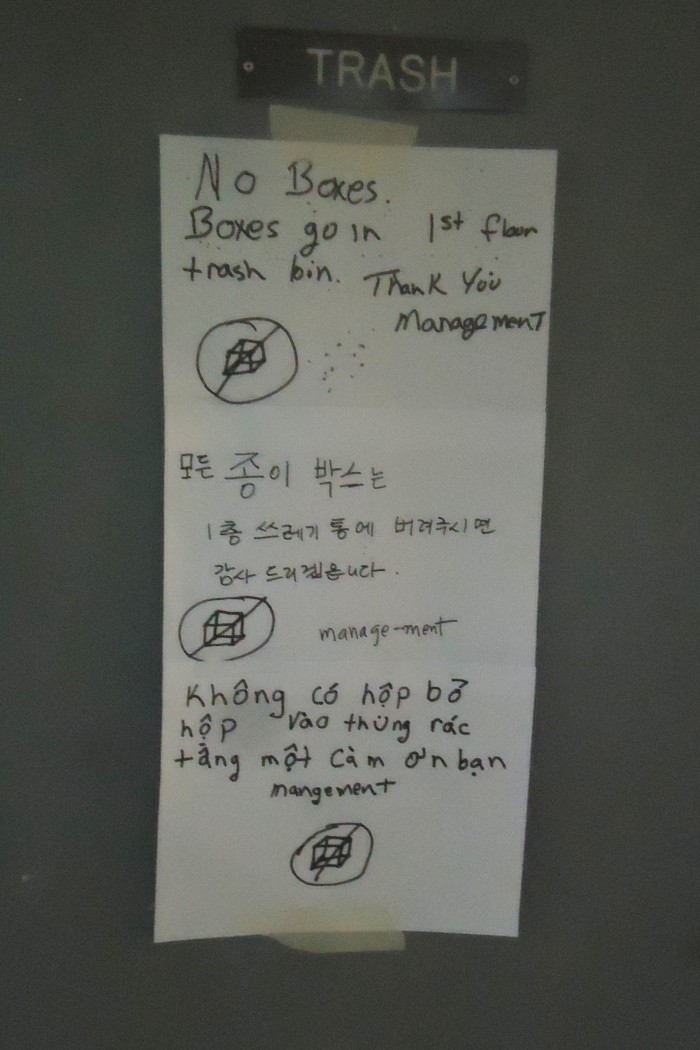 TRASH
No Boxes.
Boxes go in 1st floor
trash bin. Thank You
Management
모든 종이 박스는
1층 쓰레기 통에 버려주시면
감사 드리겠읍니다.
manage-ment
Không có hộp bỏ
hộp vào thùng rác
tầng một Cảm ơn bạn
mangement